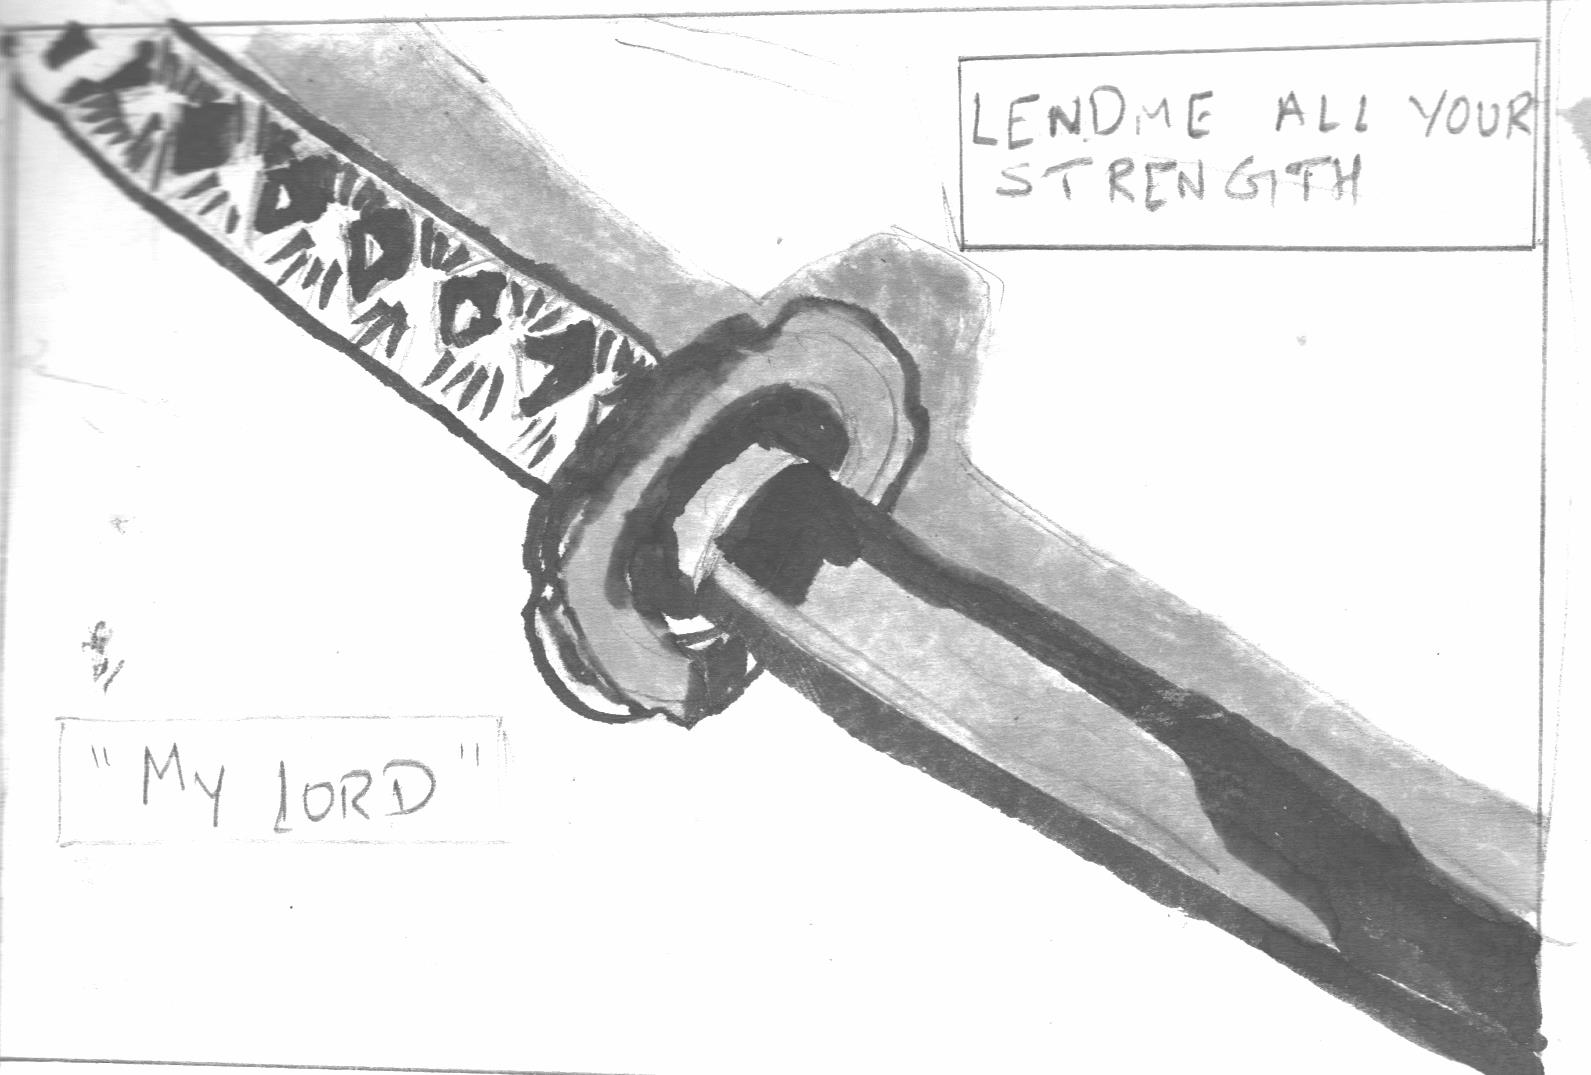 LENDME ALL YOUR
STRENGTH
"MY LORD"